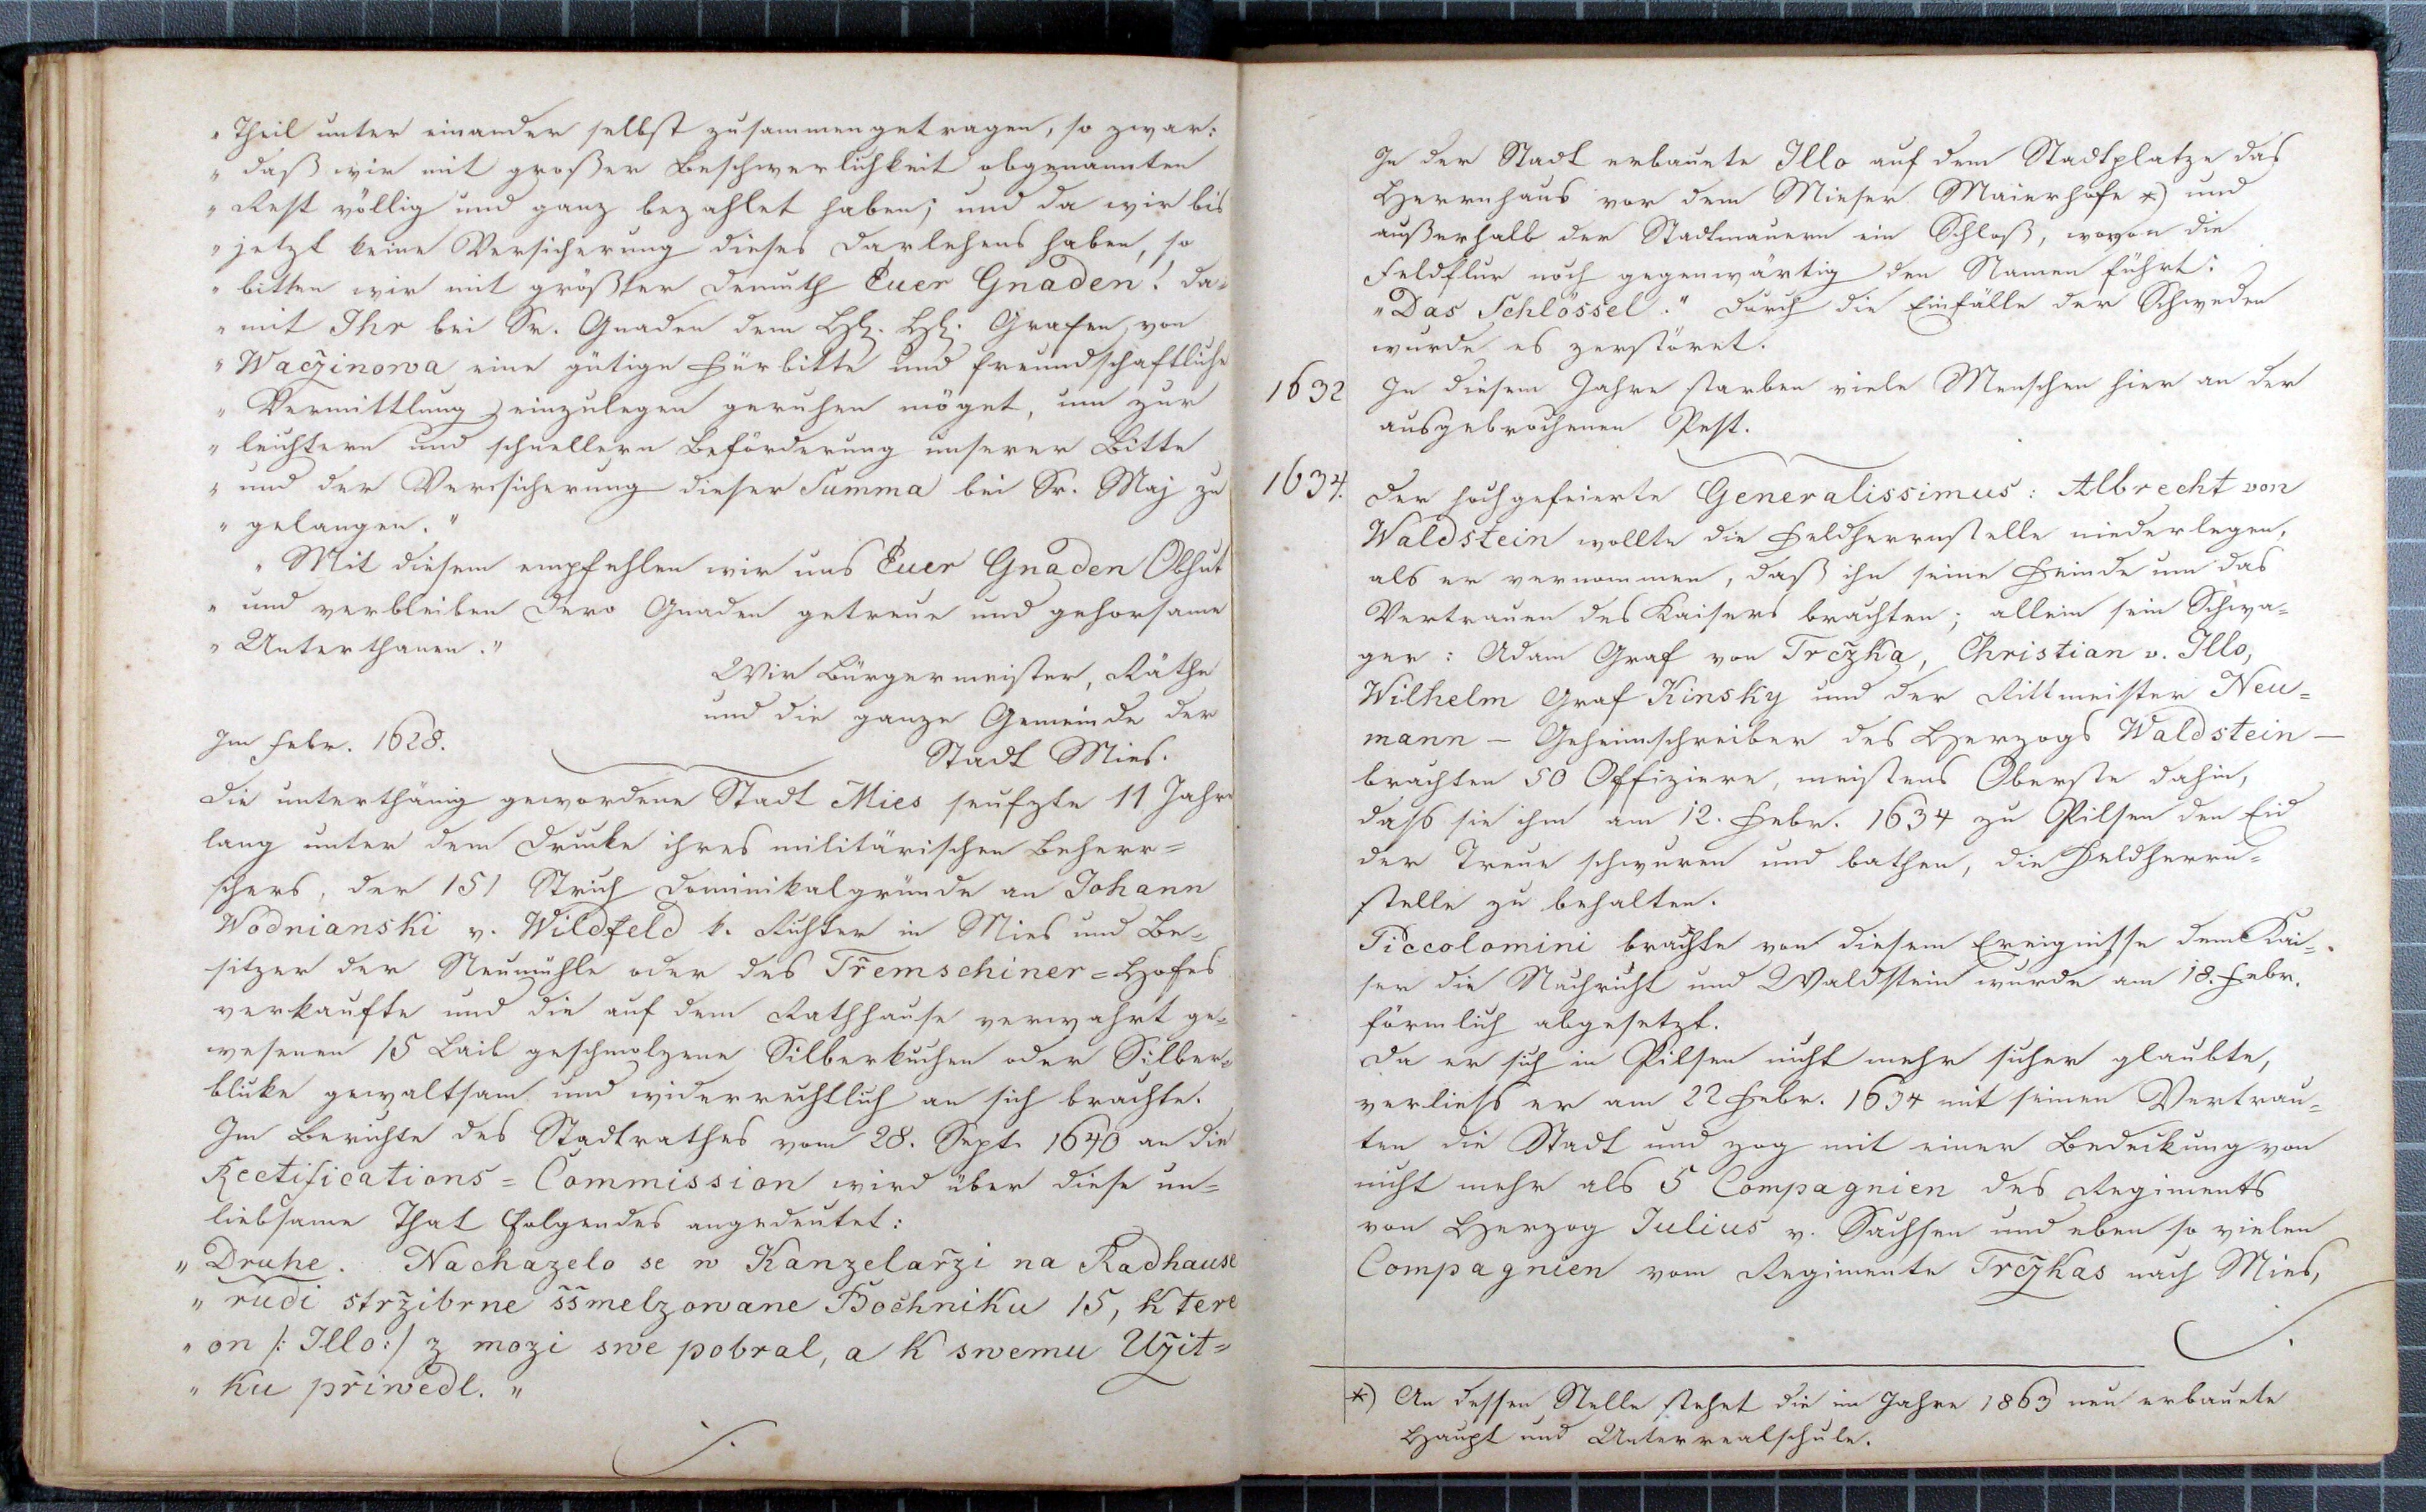 „Theil unter einander selbst zusammengetragen, so zwar:
„daß wir mit großer Beschwerlichkeit obgenannten
„Rest völlig und ganz bezahlet haben; und da wir bis
„jetzt keine Versicherung dieses Darlehens haben, so
„bitten wir mit größter Demuth Euer Gnaden! da-
„mit Ihr bei Sr. Gnaden dem H. H. Grafen von
„Waczinowa eine gütige Fürbitte und freundschaftliche
„Vermittlung einzulegen geruhen möget, um zur
„leichtern und schnellern Beförderung unserer Bitte
„und der Versicherung dieser Summa bei Sr. Maj zu
„gelangen."
„Mit diesem empfehlen wir uns Euer Gnaden Obhut
„und verbleiben Dero Gnaden getreue und gehorsame
„Unterthanen."
Wir Bürgermeister, Räthe
und die ganze Gemeinde der
Im Febr. 1628.
Stadt Mies.
Die unterthänig gewordene Stadt Mies seufzte 11 Jahre
lang unter dem Drucke ihres militärischen Beherr=
schers, der 151 Strich Dominikalgründe an Johann
Wodnianski v. Wildfeld k. Richter in Mies und Be-
sitzer der Neumühle oder des Třemschiner=Hofes
verkaufte und die auf dem Rathhause verwahrt ge-
wesenen 15 Laib geschmolzene Silberkuchen oder Silber-
blicke gewaltsam und widerrechtlich an sich brachte.
Im Berichte des Stadtrathes vom 28. Sept. 1640 an die
Rectifications=Commission wird über diese un=
liebsame That Folgendes angedeutet:
„Druhe. Nachazelo se w Kanzelařzi na Radhause
„rudi stržibrne ššmelzowane Bochniku 15, ktere
„on /: Illo:/ z mozi swe pobral, a k swemu Užit=
„ku přiwedl."
In der Stadt erbauete Illo auf dem Stadtplatze das
Herrnhaus vor dem Mieser Maierhofe *) und
außerhalb der Stadtmauern ein Schloß, wovon die
Feldflur noch gegenwärtig den Namen führt:
„Das Schlössel." Durch die Einfälle der Schweden
wurde es zerstöret.
1632 In diesem Jahre starben viele Menschen hier an der
ausgebrochenen Pest.
1634. Der hochgefeierte Generalissimus: Albrecht von
Waldstein wollte die Feldherrnstelle niederlegen,
als er vernommen, daß ihn seine Feinde um das
Vertrauen des Kaisers brachten; allein sein Schwa-
ger: Adam Graf von Trczka, Christian v. Illo,
Wilhelm Graf Kinsky und der Rittmeister Neu=
mann – Geheimschreiber des Herzogs Waldstein –
brachten 50 Offiziere, meistens Oberste dahin,
dass sie ihm am 12. Febr. 1634 zu Pilsen den Eid
der Treue schwuren und bathen, die Feldherrn-
stelle zu behalten.
Piccolomini brachte von diesem Ereignisse dem Kai-
ser die Nachricht und Waldstein wurde am 18. Febr.
förmlich abgesetzt.
Da er sich in Pilsen nicht mehr sicher glaubte,
verliess er am 22 Febr. 1634 mit seinen Vertrau-
ten die Stadt und zog mit einer Bedeckung von
nicht mehr als 5 Compagnien des Regiments
von Herzog Julius v. Sachsen und eben so vielen
Compagnien vom Regimente Trczkas nach Mies,
*) An dessen Stelle stehet die im Jahre 1863 neu erbauete
Haupt und Unterrealschule.